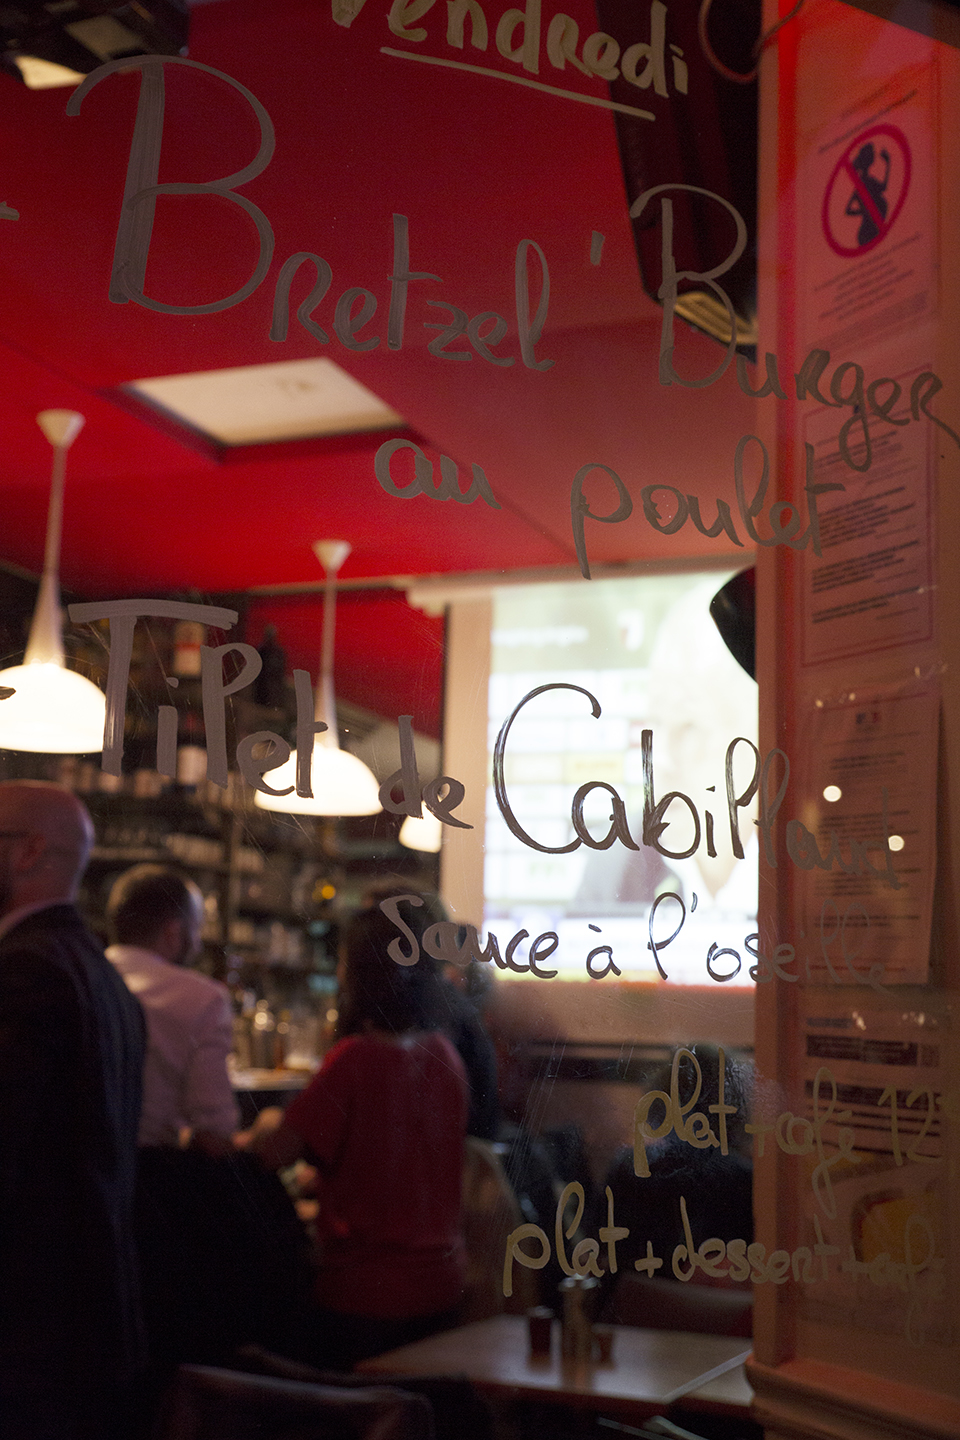 Vendredi
- Bretzel' Burger
au poulet
- Filet de Cabillaud
Sauce à l'oseille
plat + café 12
plat + dessert + café